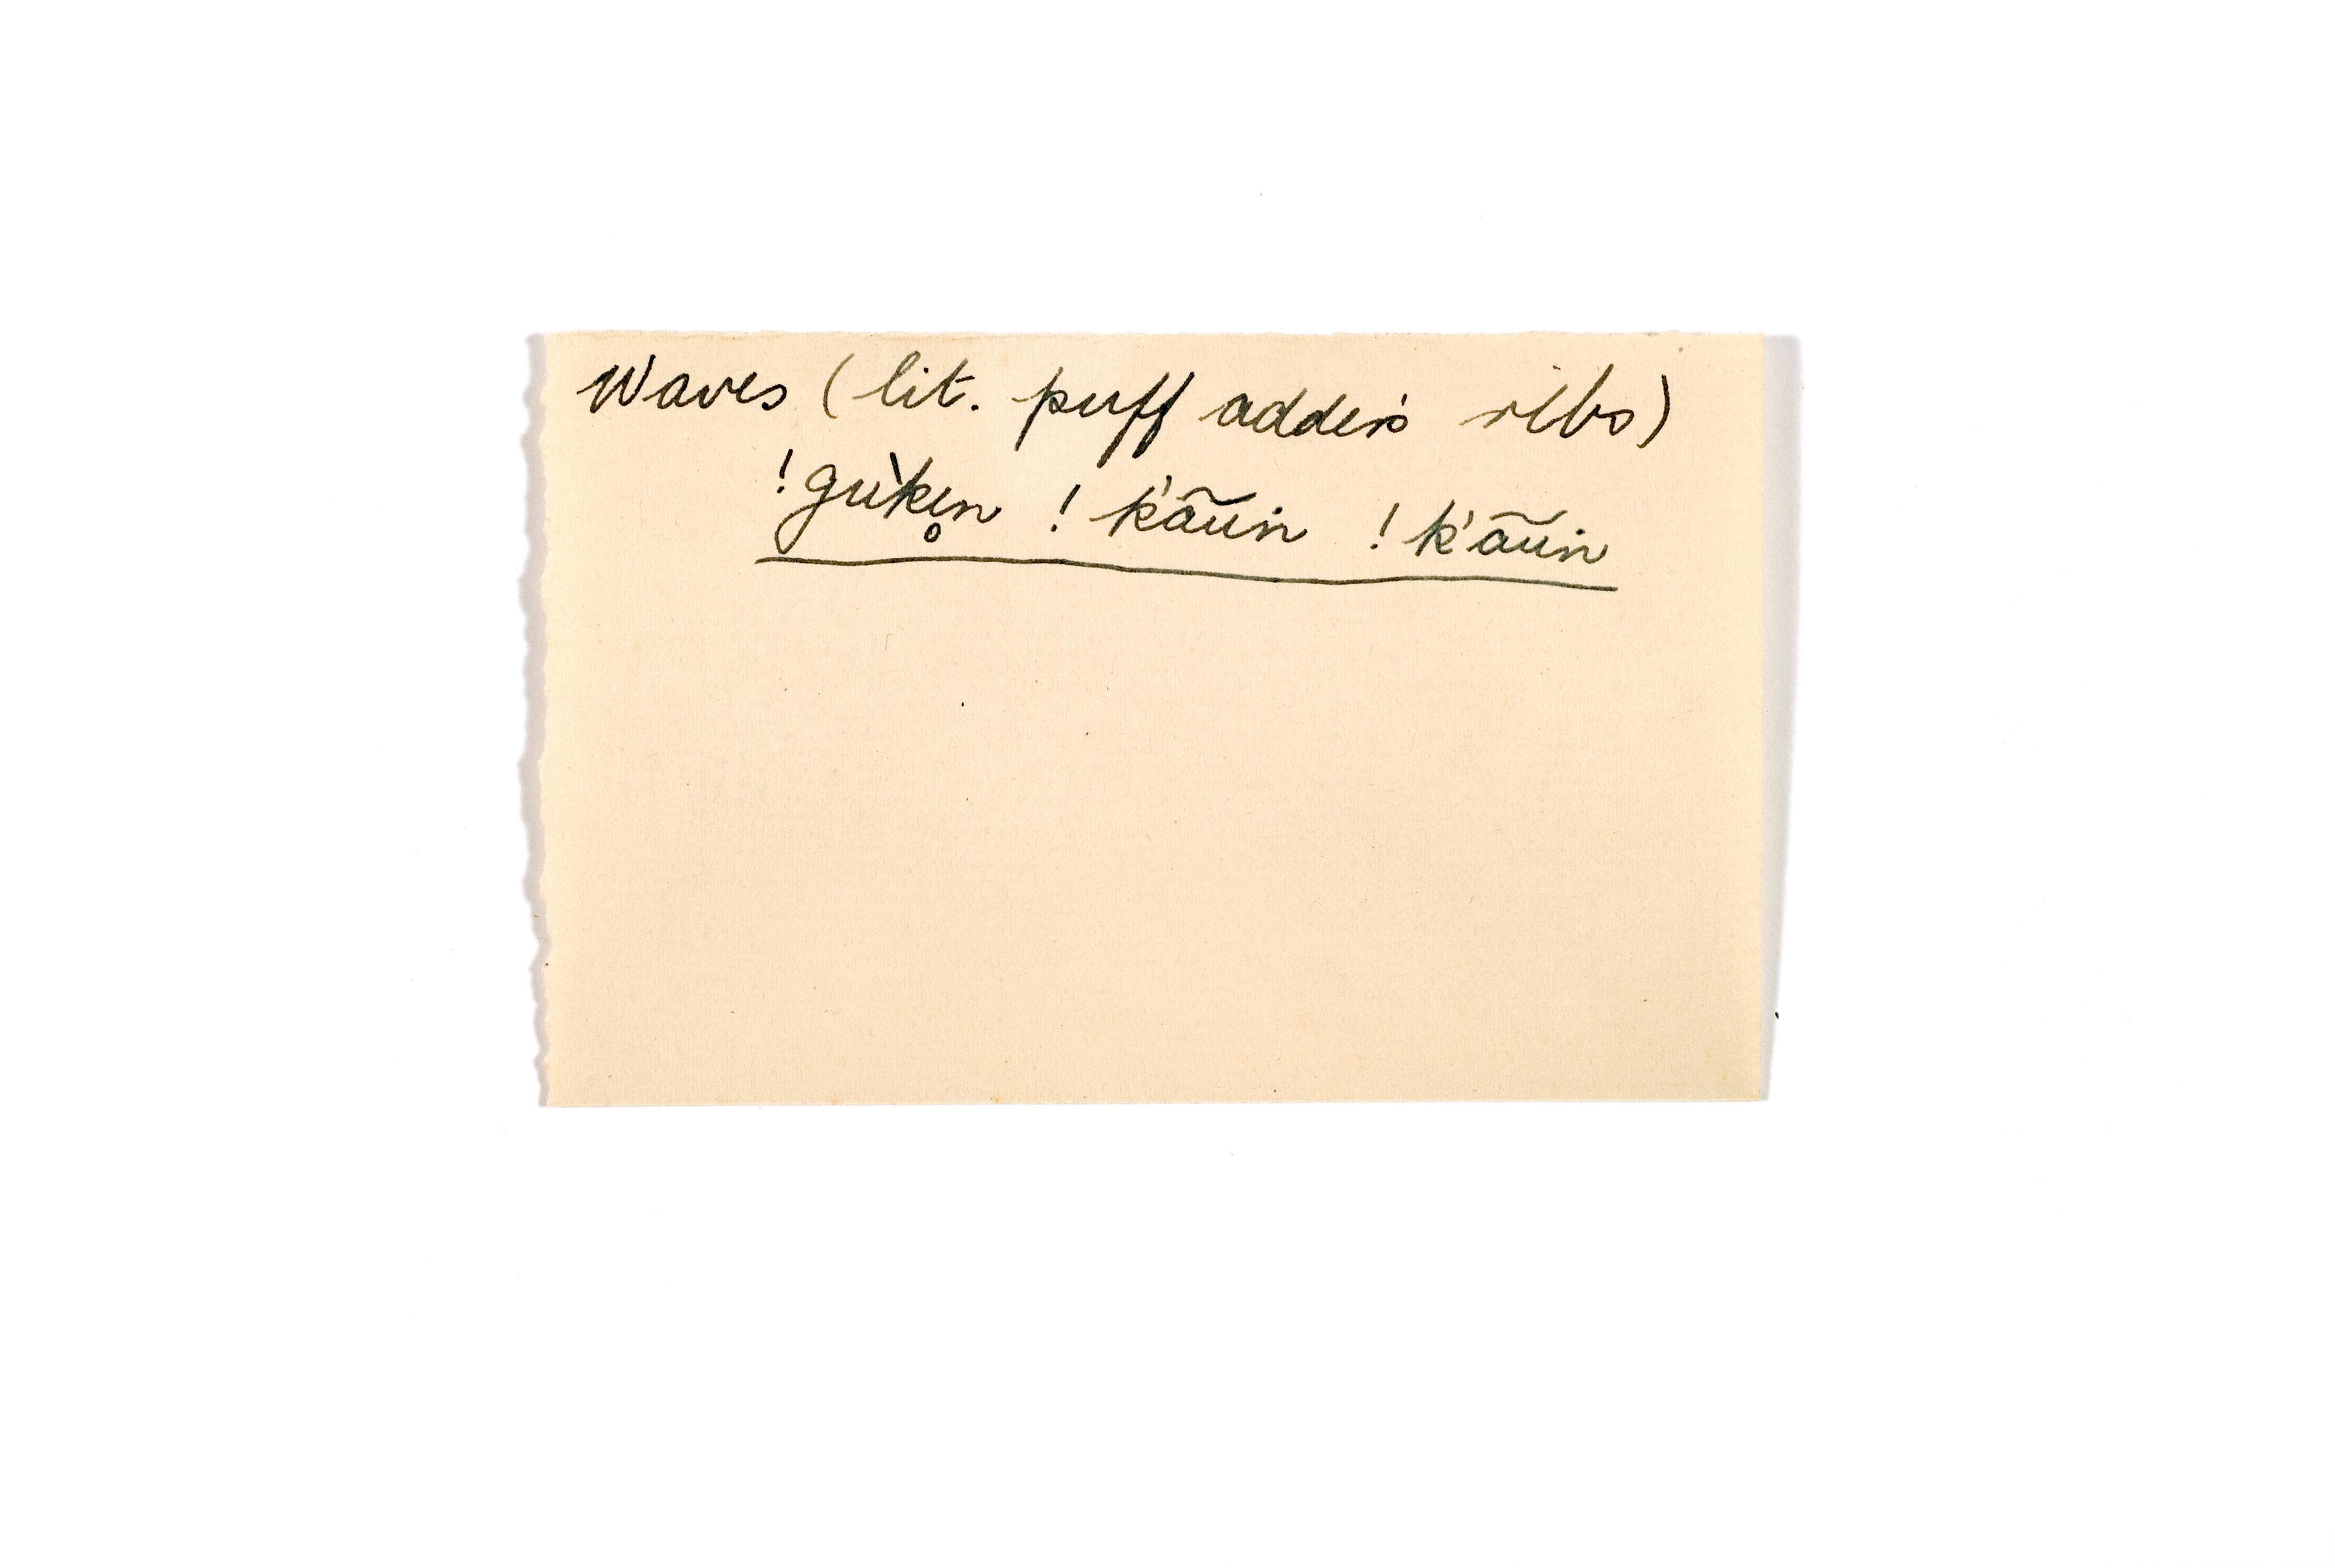 Waves (lit. puff adder's ribs)
!gùke̥n !k'ãũin !k'ãũin